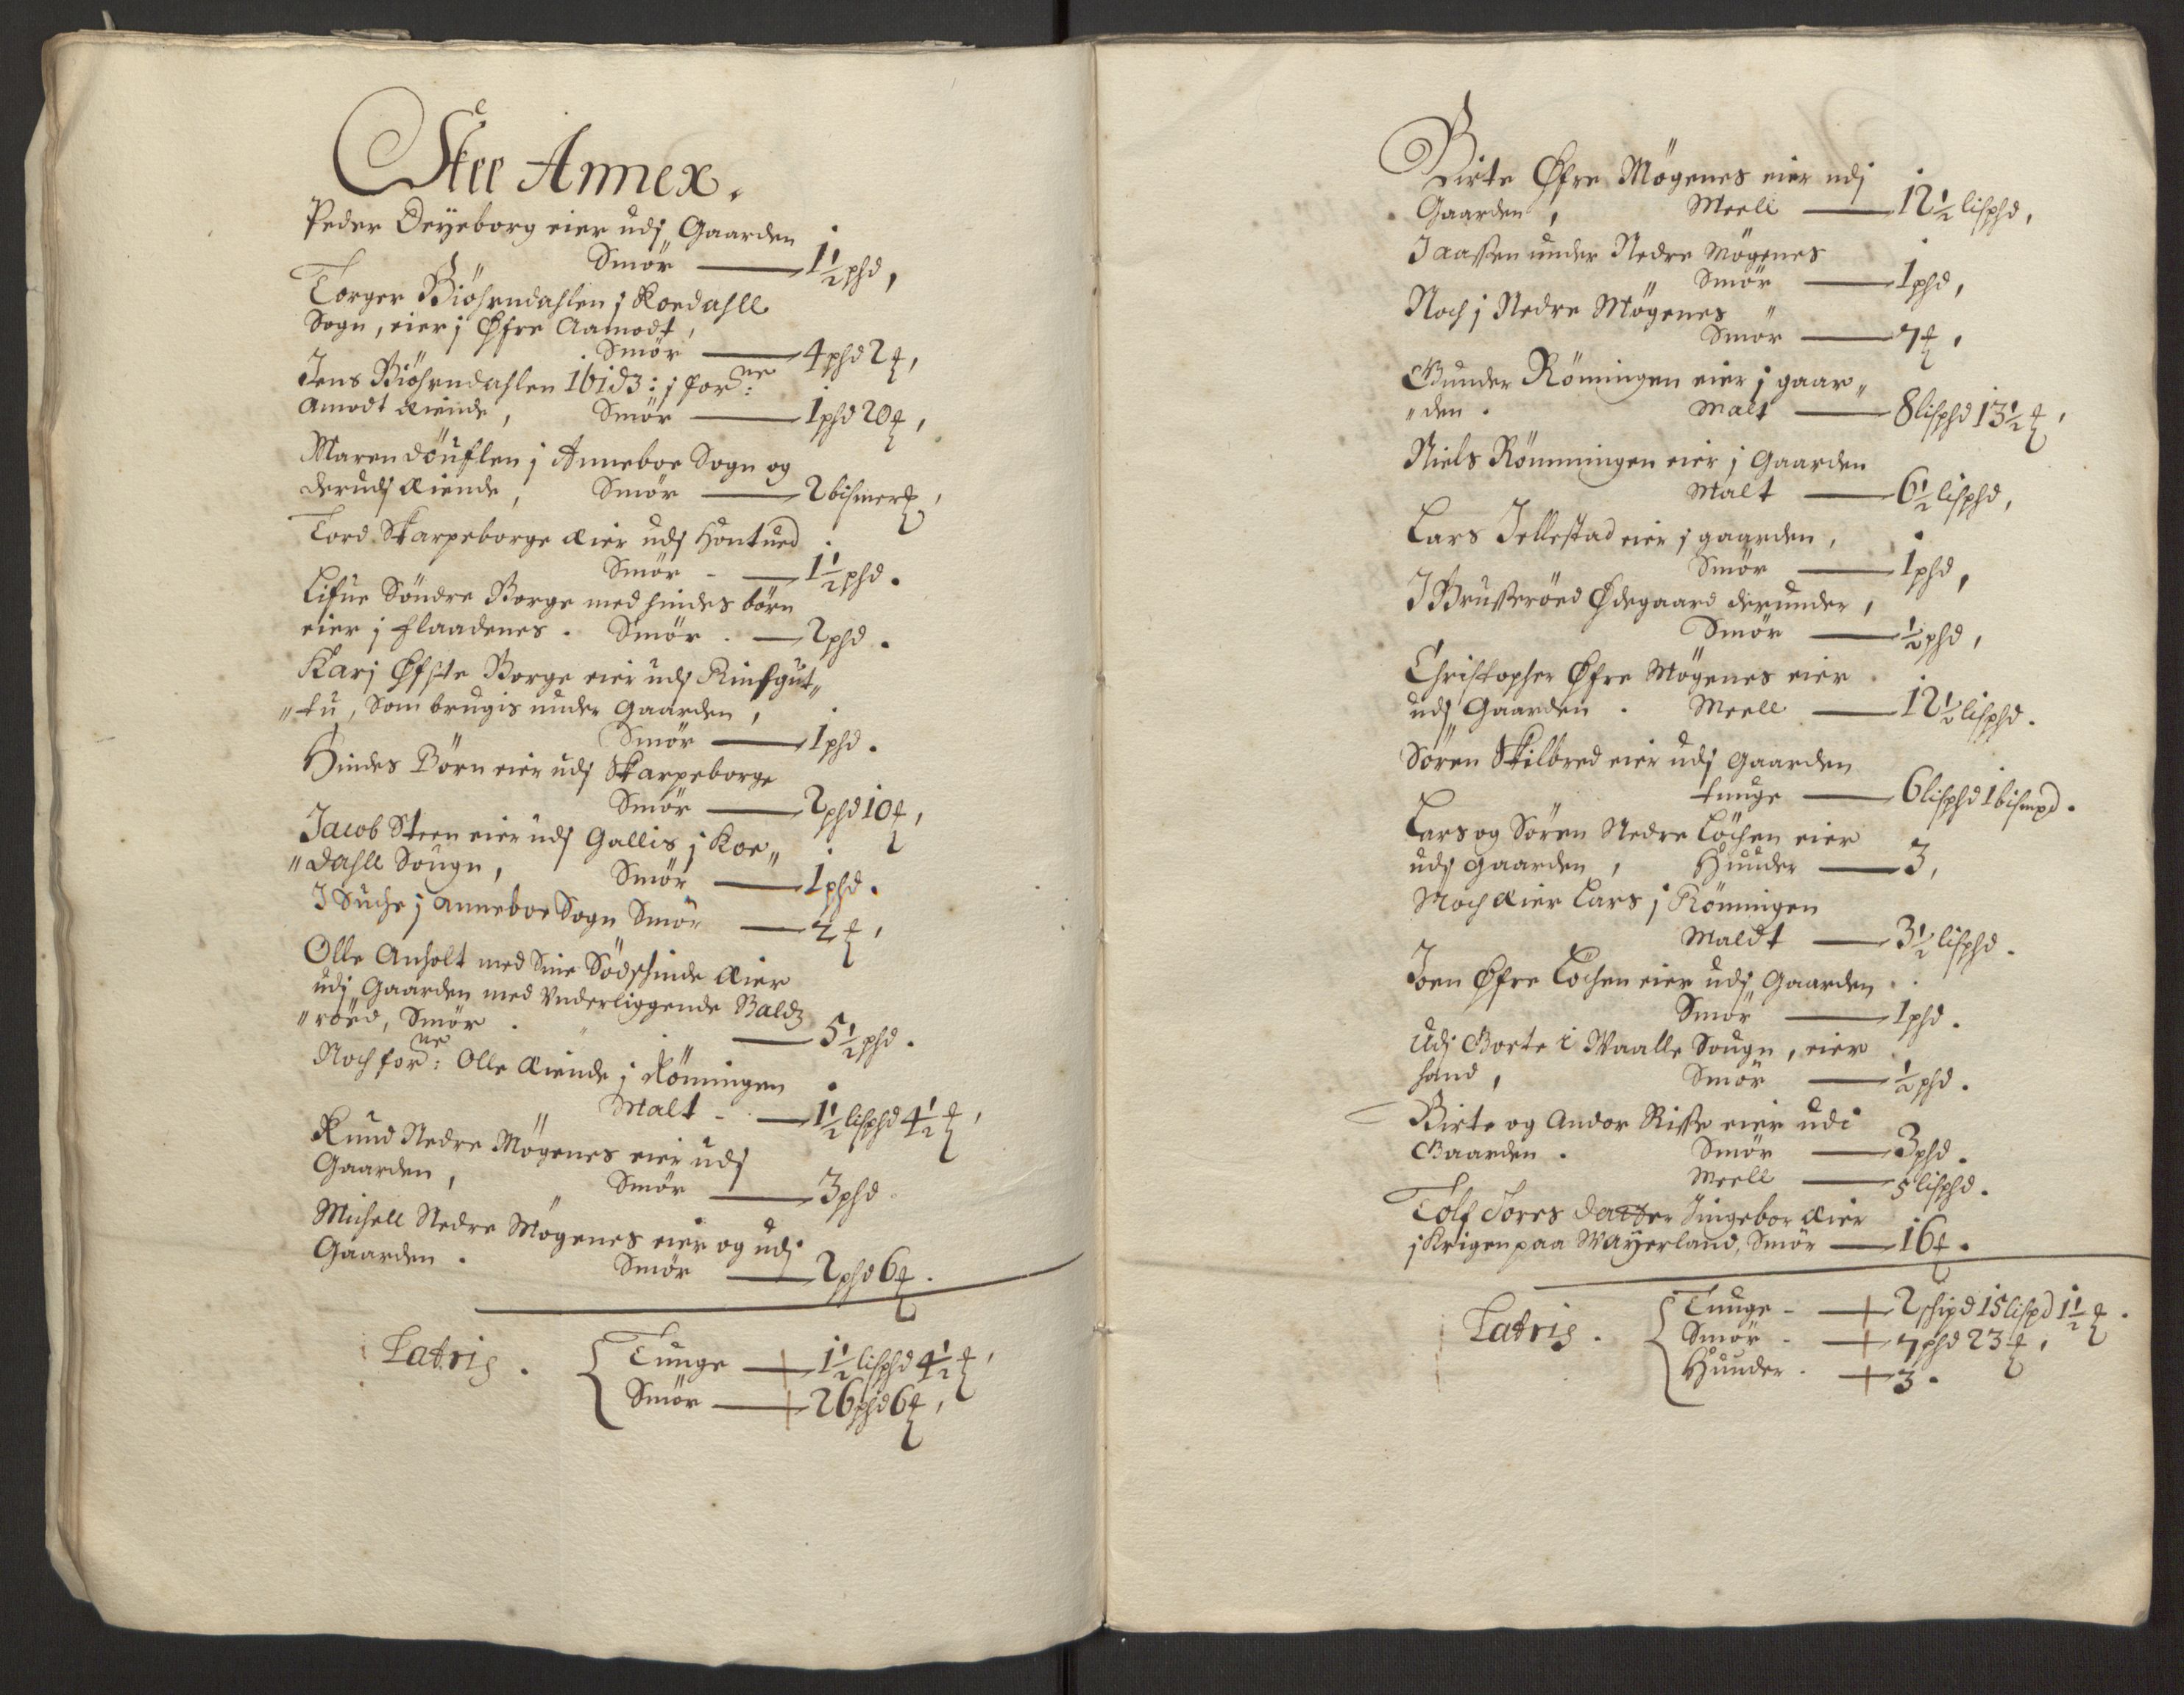 Stee Annex.
Peder Deyeborg eier udj Gaarden
Smör — 1½ phd,
Torger Biöhrndahlen j Roedahll
Sogn, eier j Øfre Aamodt,
Smör — 4 phd 2 ℔,
Jens Biöhrndahlen ibid: j for:ne
Amodt æiende, Smör — 1 phd 20 ℔,
Maren döuflen j Anneboe Sogn og
derudj æiende, Smör — 2 bismer ℔,
Tord Skarpeborge æier udj Hontued
Smör — 1½ phd.
Lisue Söndre Borge med hindes börn
eier j Flaadenes. Smör. — 2 phd.
Karj Øfste Borge eier udj
"tu, Som brugis under Gaarden,
Smör — 1 phd.
Hindes Börn eier udj Skarpeborge
Smör — 2 phd 10 ℔,
Jacob Steen eier udj Gallis j Roe"
"dahll Sougn, Smör — 1 phd.
J Suche j Anneboe Sogn Smör — 2 ℔,
Olle Anholt med Sine Södschinde æier
udj Gaarden med Vnderliggende Baldz
"röed, Smör. — 5½ phd.
Noch for:ne Olle æiende j Römingen
Malt — 1½ lisphd 4½ ℔,
Knud Nedre Mögenes eier udj
Gaarden, Smör — 3 phd.
Michell Nedre Mögenes eier og udj
Gaarden. Smör — 2 phd 6 ℔.
Latris. Tunge — 1½ lisphd 4½ ℔,
Smör — 26 phd 6 ℔,
Birte Øfre Mögenes eier udj
Gaarden, Meell — 12½ lisphd,
J Aassen under Nedre Mögenes
Smör — 1 phd,
Noch j Nedre Mögenes
Smör — 7 ℔,
Gunder Römingen eier j gaar"
"den. Malt — 8 lisphd 13½ ℔,
Niels Römmingen eier j Gaarden
Malt — 6½ lisphd,
Lars Jellestad eier j gaarden,
Smör — 1 phd,
J Brusseröed Ødegaard derunder,
Smör — ½ phd,
Christopher Øfre Mögenes eier
udj Gaarden. Meell — 12½ lisphd.
Sören Skilbred eier udj Gaarden
tunge — 6 lisphd 1 bismpd.
Lars og Sören Nedre Löchen eier
udj gaarden, Huuder — 3,
Noch æier Lars j Römingen
Maldt — 3½ lisphd.
Joen Øfre Löchen eier udj Gaarden
Smör — 1 phd.
Udj Borte i Waalle Sougn, eier
hand, Smör — ½ phd.
Birte og Andor Risse eier udi
Gaarden. Smör — 3 phd.
Meell — 5 lisphd.
Tolf Tores datter Jngebor æier
j Krigen paa Wayerland, Smör — 16 ℔.
Latris. Tunge — 2 schipd 15 lispd 1½ ℔.
Smör — 7 phd 23 ℔,
Huuder. — 3.